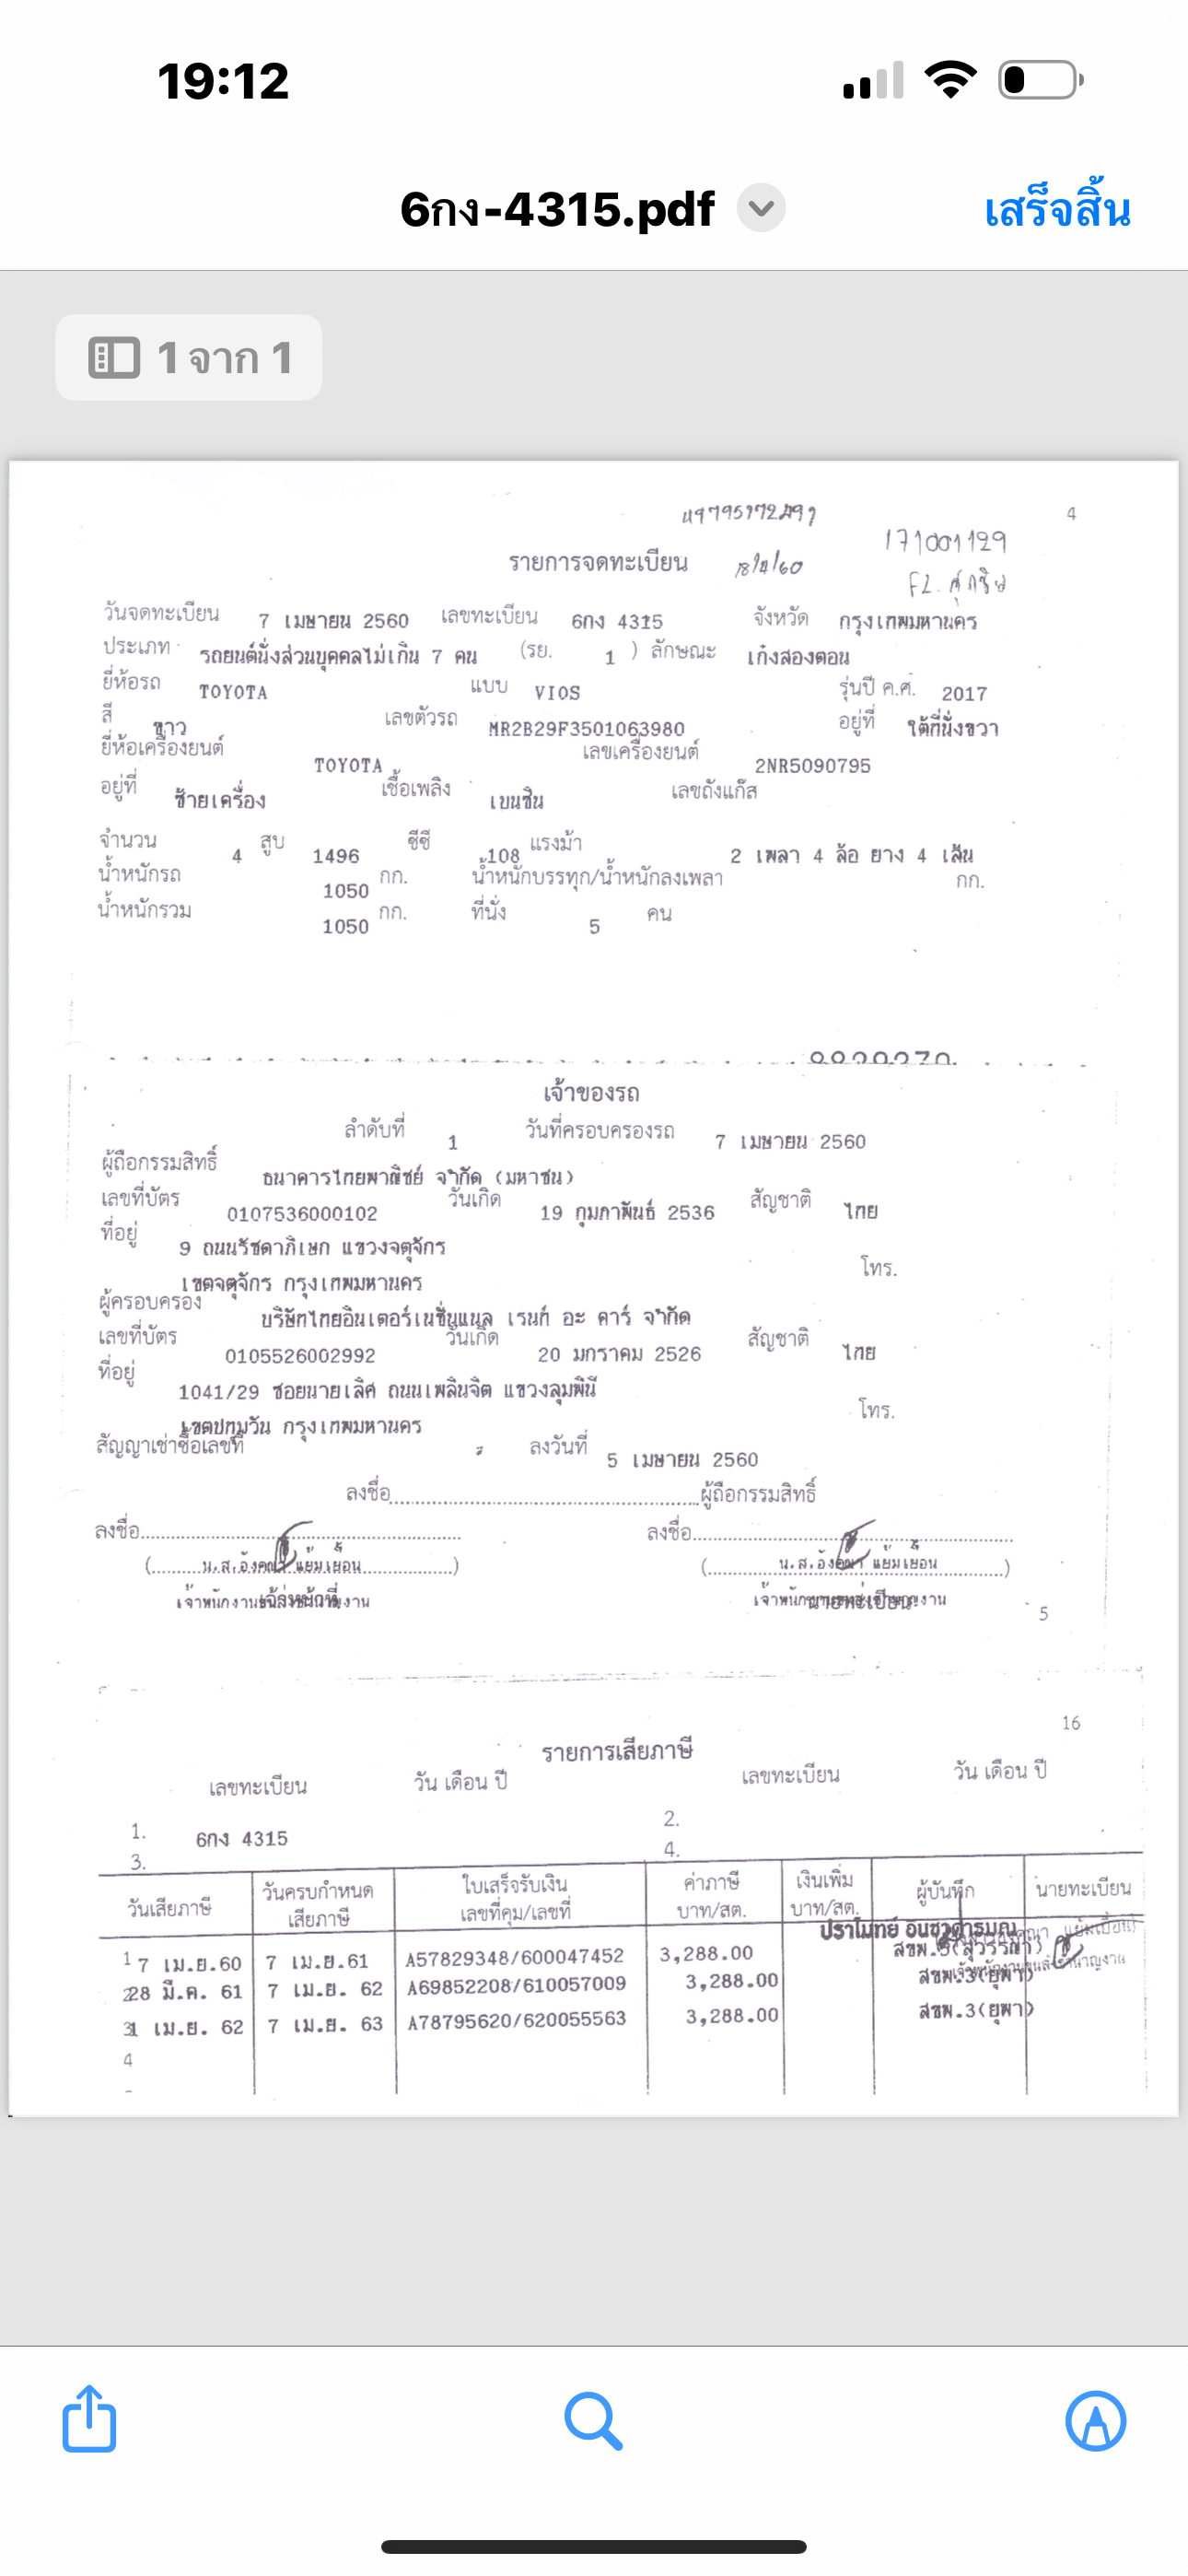 19:12
6กง-4315.pdf
เสร็จสิ้น
1 จาก 1
4
171001129
รายการจดทะเบียน
วันจดทะเบียน 7 เมษายน 2560 เลขทะเบียน 6กง 4315 จังหวัด กรุงเทพมหานคร
ประเภท รถยนต์นั่งส่วนบุคคลไม่เกิน 7 คน (รย. 1 ) ลักษณะ เก๋งสองตอน
ยี่ห้อรถ TOYOTA แบบ VIOS รุ่นปี ค.ศ. 2017
สี ขาว เลขตัวรถ MR2B29F3501063980 อยู่ที่ ใต้ที่นั่งขวา
ยี่ห้อเครื่องยนต์ TOYOTA เลขเครื่องยนต์ 2NR5090795
อยู่ที่ ซ้ายเครื่อง เชื้อเพลิง เบนซิน เลขถังแก๊ส
จำนวน 4 สูบ 1496 ซีซี 108 แรงม้า 2 เพลา 4 ล้อ ยาง 4 เส้น
น้ำหนักรถ 1050 กก. น้ำหนักบรรทุก/น้ำหนักลงเพลา กก.
น้ำหนักรวม 1050 กก. ที่นั่ง 5 คน
เจ้าของรถ
ลำดับที่ 1 วันที่ครอบครองรถ 7 เมษายน 2560
ผู้ถือกรรมสิทธิ์ ธนาคารไทยพาณิชย์ จำกัด (มหาชน)
เลขที่บัตร 0107536000102 วันเกิด 19 กุมภาพันธ์ 2536 สัญชาติ ไทย
ที่อยู่ 9 ถนนรัชดาภิเษก แขวงจตุจักร
เขตจตุจักร กรุงเทพมหานคร โทร.
ผู้ครอบครอง บริษัทไทยอินเตอร์เนชั่นแนล เรนท์ อะ คาร์ จำกัด
เลขที่บัตร 0105526002992 วันเกิด 20 มกราคม 2526 สัญชาติ ไทย
ที่อยู่ 1041/29 ซอยนายเลิศ ถนนเพลินจิต แขวงลุมพินี
เขตปทุมวัน กรุงเทพมหานคร โทร.
สัญญาเช่าซื้อเลขที่ ลงวันที่ 5 เมษายน 2560
ลงชื่อ ผู้ถือกรรมสิทธิ์
ลงชื่อ ลงชื่อ
(น.ส.อังคณา แย้มเยื้อน) (น.ส.อังคณา แย้มเยื้อน)
5
16
รายการเสียภาษี
เลขทะเบียน วัน เดือน ปี เลขทะเบียน วัน เดือน ปี
1. 6กง 4315 2.
3. 4.
วันเสียภาษี วันครบกำหนดเสียภาษี ใบเสร็จรับเงิน เลขที่คุม/เลขที่ ค่าภาษี บาท/สต. เงินเพิ่ม บาท/สต. ผู้บันทึก นายทะเบียน
1 7 เม.ย.60 7 เม.ย.61 A57829348/600047452 3,288.00 สขพ.3(สุวรรณา)
2 28 มี.ค. 61 7 เม.ย. 62 A69852208/610057009 3,288.00 สขพ.3(ยุพา)
3 1 เม.ย. 62 7 เม.ย. 63 A78795620/620055563 3,288.00 สขพ.3(ยุพา)
4